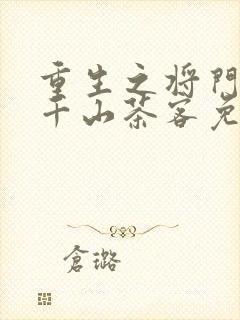 重生之将门
千山茶客免
仓璐